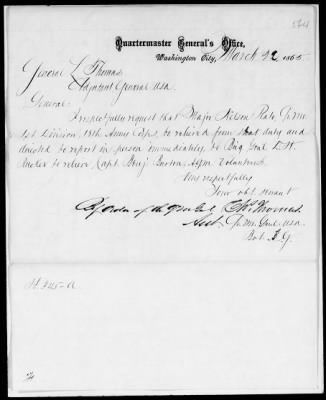 Quartermaster General's Office,
Washington City, March 22 1865
General L. Thomas
Adjutant General USA
General
I respectfully request that Major Nelson Q.M.
1st Division, 18th Army Corps, be relieved from that duty and
directed to report in person immediately to Brig Genl D. H.
Rucker to relieve Capt. Benj. AQM. Volunteers.
Very respectfully
Your obt servant
By Order of the Chs Thomas
Asst. Q. M. Genl. USA
Bvt. B. G.